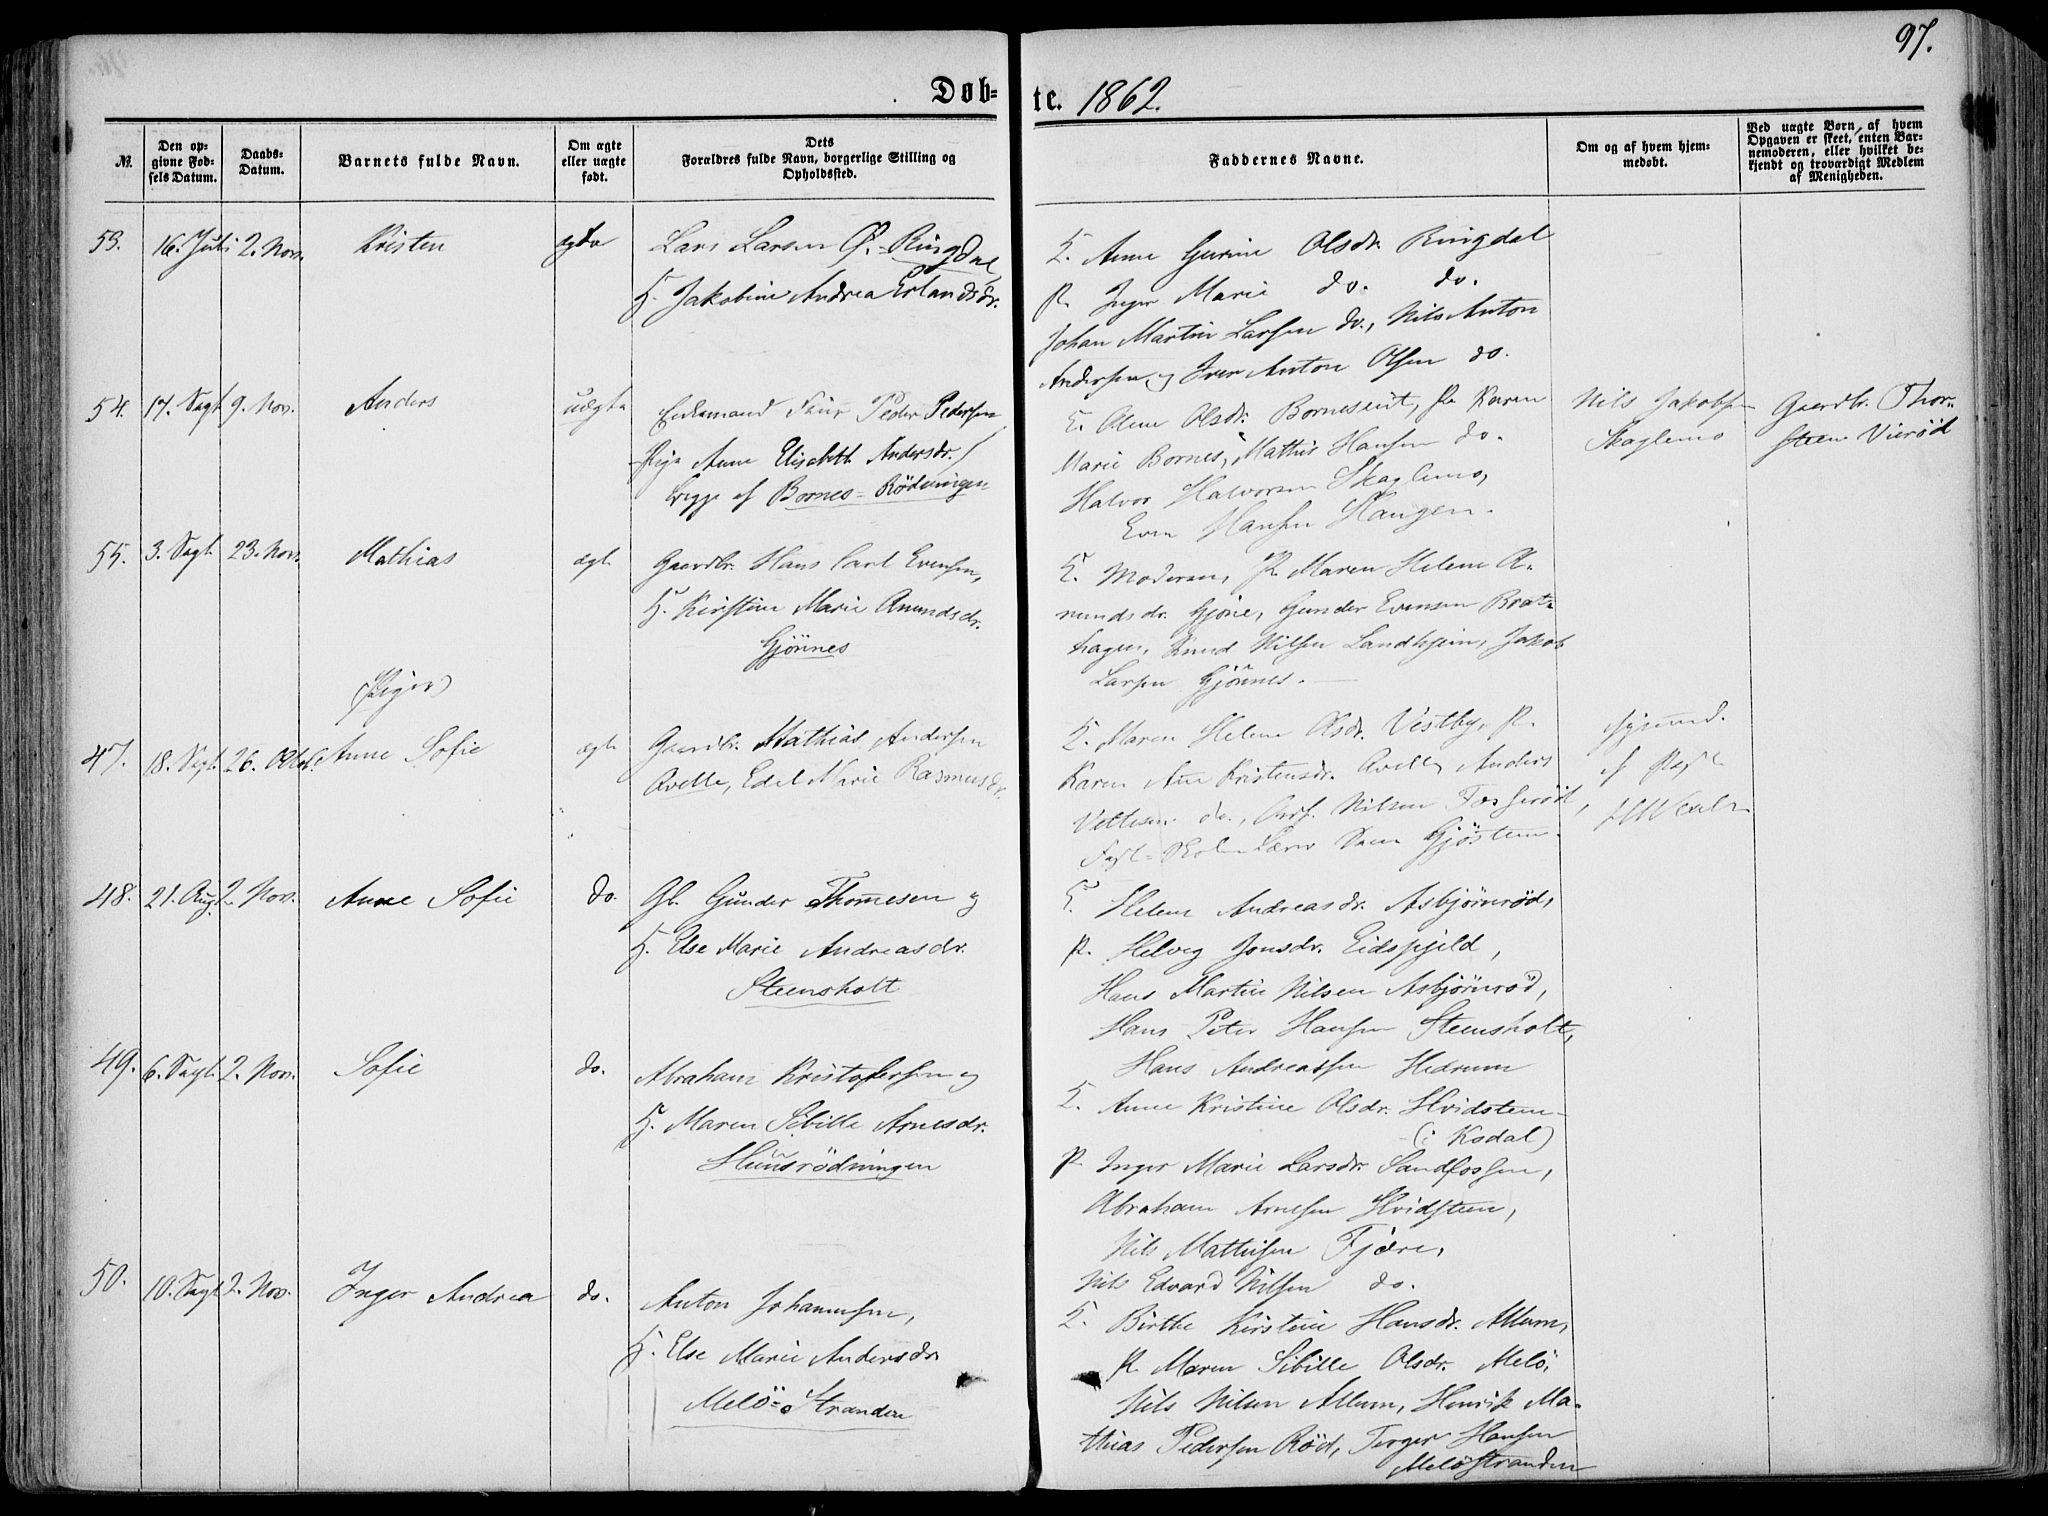 97.
Døb=
te. 1862.
№.
Den op-
givne Fød-
sels Datum.
Daabs-
Datum.
Barnets fulde Navn.
Om ægte
eller uægte
født.
Dets
Forældres fulde Navn, borgerlige Stilling og
Opholdssted.
Faddernes Navne.
Om og af hvem hjem-
medøbt.
Ved uægte Børn, af hvem
Opgaven er skeet, enten Bar-
nemoderen, eller hvilket be-
kjendt og troværdigt Medlem
af Menigheden.
53. 16. Juli 2. Nov. Kristen ægte
Lars Larsen Ø. Ringdal
H. Jakobine Andrea Erlandsdr.
F. Anne Gurine Olsdr. Ringdal
P. Inger Marie do. do.
Johan Martin Larsen do., Nils Anton
Andersen, og Iver Anton Olsen do.
54. 17. Sept 9. Nov. Anders uægte
Enkemand Peder Pedersen
Pige Anne Elisabeth Andersdr.
begge af Bornes=Rödningen
F. Olene Olsdr. Borneseiet, P. Karen
Marie Bornes, Mathis Hansen do.
Halvor Halvorsen Skaglemo,
Even Hansen Haugen.
Nils Jakobsen
Skaglemo
Gaardbr. Thor-
steen Vieröd
55. 3. Sept. 23. Nov. Mathias ægte
Gaardbr. Hans Carl Evensen,
H. Kirstine Marie Anundsdr.
Gjönnes
F. Moderen, P. Maren Helene A-
nundsdr. Gjöne, Gunder Evensen Brat-
hagen, Knud Nilsen Landhjem, Jakob
Larsen Gjönnes.
(Piger)
47. 18. Sept. 26. Okt. Anne Sofie ægte
Gaardbr. Mathias Andersen
Ovelle, Edel Marie Rasmusdr.
F. Maren Helene Olsdr. Vestby, P.
Karen Ane Kristensdr. Ovelle, Anders
Vettesen do., Nilsen
Lærer Gjösteen.
48. 21. Aug. 2. Nov. Anne Sofie do.
Gb. Gunder Thomesen og
H. Else Marie Andreasdr.
Steensholt
F. Helene Andreasdr. Asbjörnröd,
P. Helvig Jonsdr. Eidsfjeld,
Hans Martin Nilsen Asbjörnröd,
Hans Peter Hansen Steensholt,
Hans Andreassen Hedrum
49. 6. Sept. 2. Nov. Sofie do.
Abraham Kristofersen og
H. Maren Sibille Arnesdr.
Huusrödningen
F. Anne Kristine Olsdr. Hvidsteen
(i Kodal)
P. Inger Marie Larsdr. Sandfossen,
Abraham Arnesen Hvidsteen,
Nils Mathisen Fjære,
Nils Edvard Nilsen do.
50. 10. Sept 2. Nov. Inger Andrea do.
Anton Johannesen,
H. Else Marie Andersdr.
Melö=Stranden
F. Birthe Kirstine Hansdr. Allum,
P. Maren Sibille Olsdr. Melö,
Nils Nilsen Allum, Henrik Ma-
thias Pedersen Röd, Torger Hansen
Melöstranden